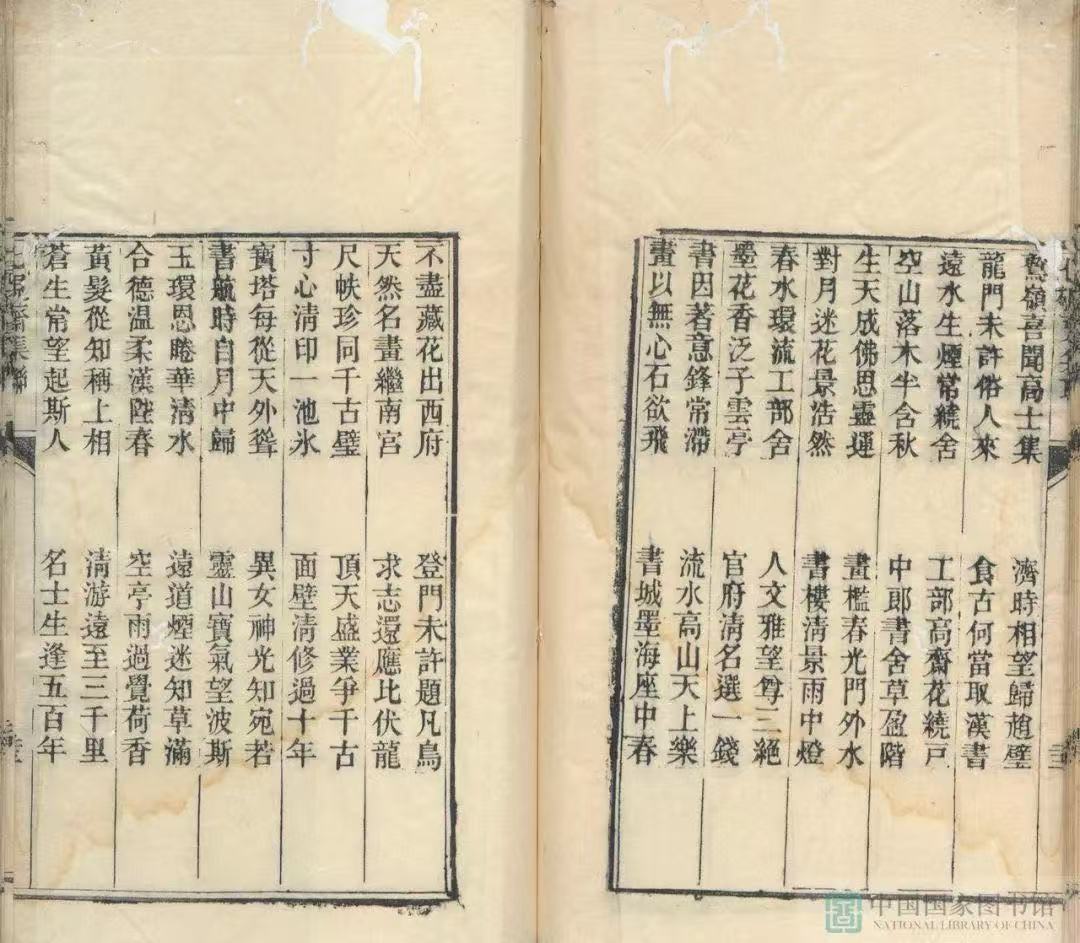 鷲嶺喜聞高士集
龍門未許俗人來
遠水生煙常繞舍
空山落木半含秋
生天成佛思靈運
對月迷花景浩然
春水環流工部舍
墨花香泛子雲亭
書因著意鋒常滯
畫以無心石欲飛
濟時相望歸趙璧
食古何當取漢書
工部高齋花繞戸
中郎書舍草盈階
畫檻春光門外水
書樓清景雨中燈
人文雅望尊三絕
官府清名選一錢
流水高山天上樂
書城墨海座中春
不盡藏花出西府
天然名畫繼南宮
尺帙珍同千古璧
寸心清印一池氷
寶塔每從天外聳
書航時自月中歸
玉環恩睠華清水
合德温柔漢陛春
黃髮從知稱上相
蒼生常望起斯人
登門未許題凡鳥
求志還應比伏龍
頂天盛業爭千古
面壁清修過十年
異女神光知宛若
靈山寶氣望波斯
遠道煙迷知草滿
空亭雨過覺荷香
清游遠至三千里
名士生逢五百年
中国国家图书馆
NATIONAL LIBRARY OF CHINA